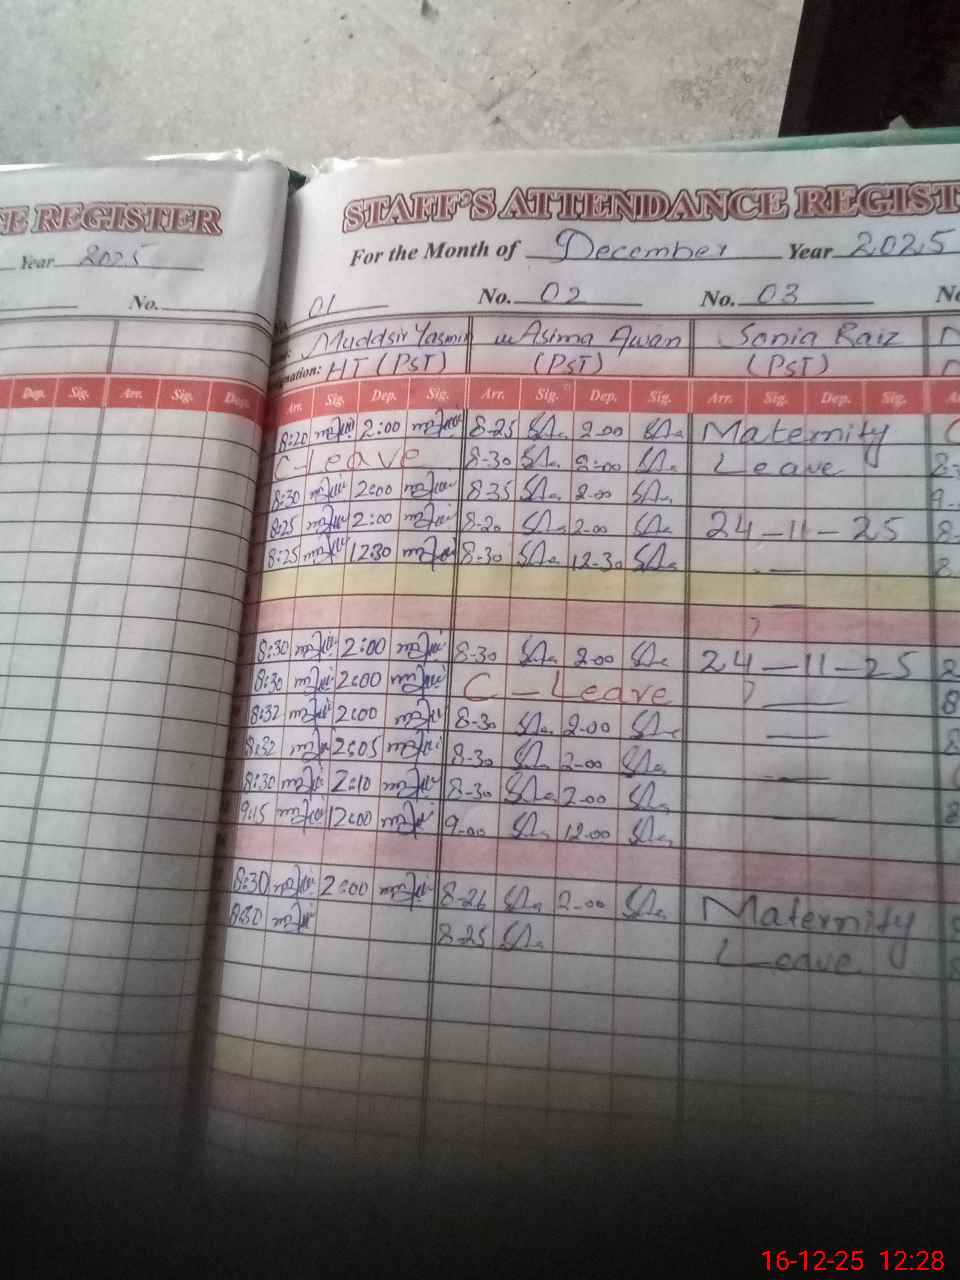 E REGISTER
STAFF'S ATTENDANCE REGIST
Year 2025
For the Month of December Year 2025
No.
01 No. 02 No. 03 No
Muddsir Yasmin Asima Awan Sonia Raiz
nation: HT (PST) (PST) (PST)
Dep. Sig. Arr. Sig. Dep. Arr. Sig. Dep. Sig. Arr. Sig. Dep. Sig. Arr. Sig. Dep. Sig.
8:20 2:00 8-25 2-00 Maternity
C-Leave 8-30 2-00 Leave
8:30 2:00 8-35 2-00
8:25 2:00 8-20 2-00 24-11-25
8:25 12:30 8-30 12-30
8:30 2:00 8-30 2-00 24-11-25
8:30 2:00 C-Leave
8:32 2:00 8-30 2-00
8:32 2:05 8-30 2-00
8:30 2:10 8-30 2-00
9:15 12:00 9-00 12-00
8:30 2:00 8-26 2-00 Maternity
8:30 8-25 Leave
16-12-25 12:28